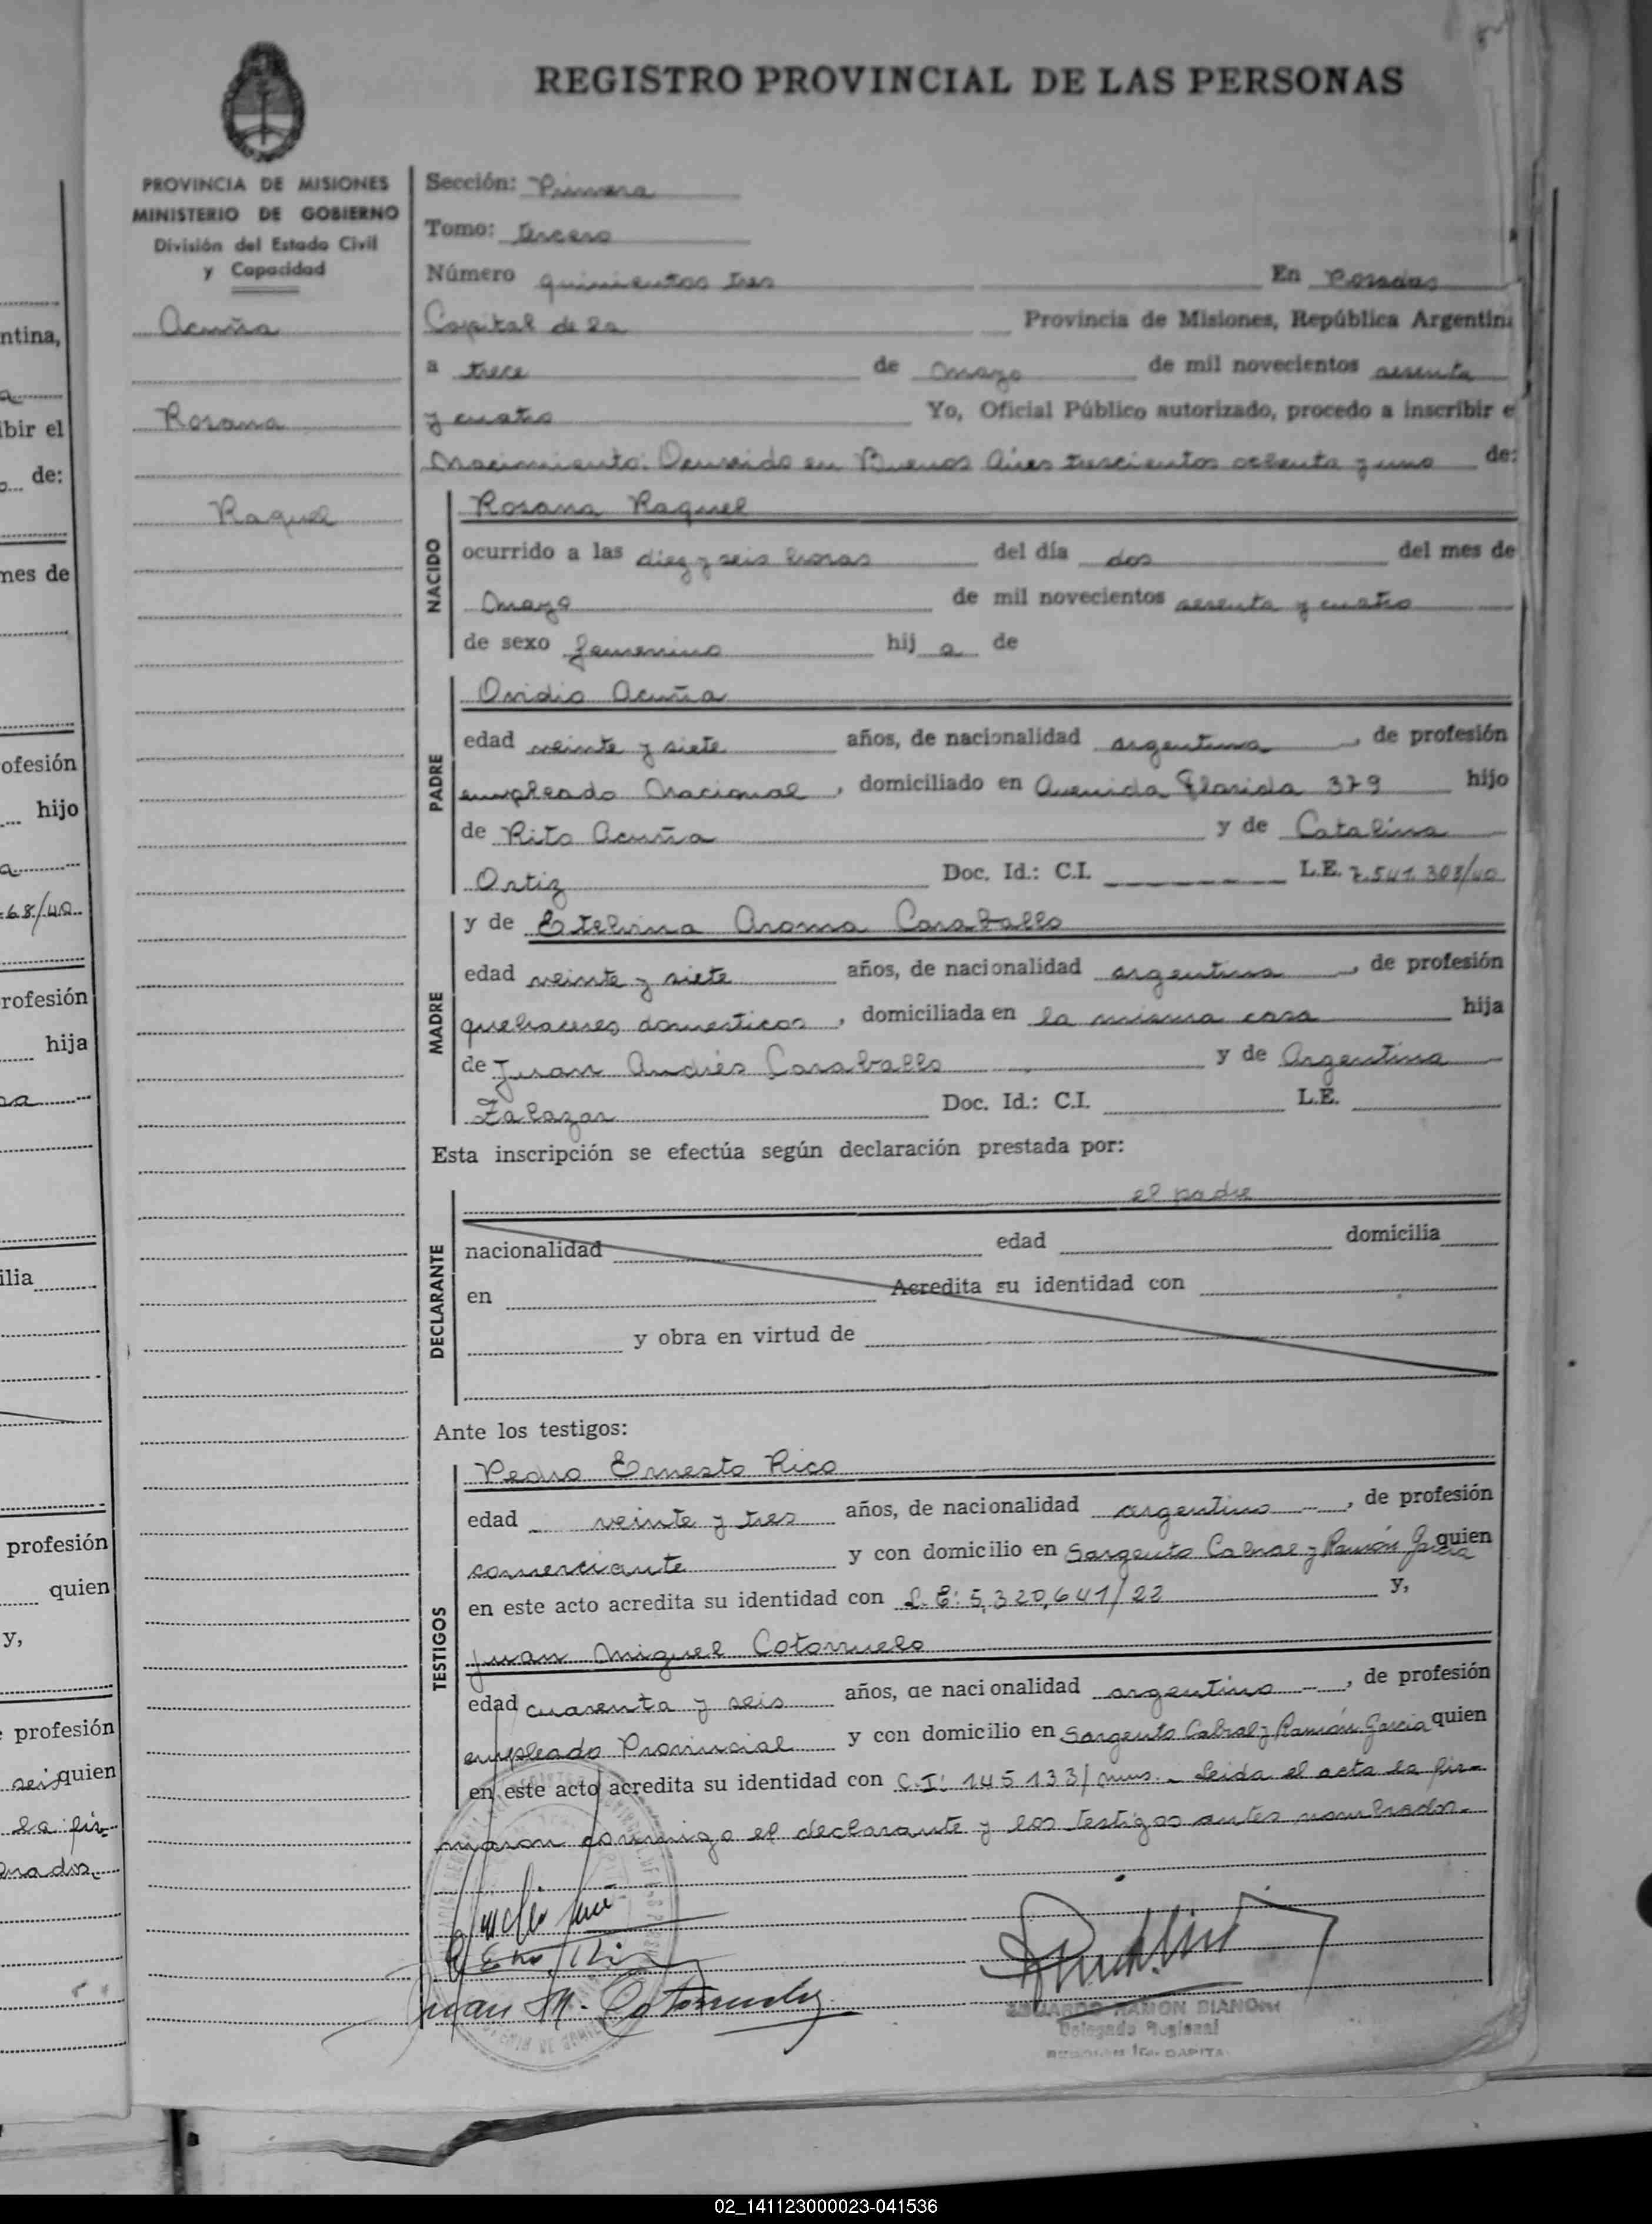 REGISTRO PROVINCIAL DE LAS PERSONAS
PROVINCIA DE MISIONES
MINISTERIO DE GOBIERNO
División del Estado Civil
y Capacidad
Acuña
Rosana
Raquel
Sección: Primera
Tomo: tercero
Número quinientos tres En Posadas
Capital de la Provincia de Misiones, República Argentina
a trece de mayo de mil novecientos sesenta
y cuatro Yo, Oficial Público autorizado, procedo a inscribir e
nacimiento: Ocurrido en Buenos Aires trescientos ochenta y uno de:
NACIDO
Rosana Raquel
ocurrido a las diez y seis horas del día dos del mes de
mayo de mil novecientos sesenta y cuatro
de sexo femenino hij a de
PADRE
Ovidio Acuña
edad veinte y siete años, de nacionalidad argentina, de profesión
empleado Nacional, domiciliado en Avenida Florida 379 hijo
de Rito Acuña y de Catalina
Ortiz Doc. Id.: C.I. L.E. 7.541.303/40
MADRE
y de Etelvina Aroma Caraballo
edad veinte y siete años, de nacionalidad argentina, de profesión
quehaceres domesticos, domiciliada en la misma casa hija
de Juan Andrés Caraballo y de Argentina
Zalazar Doc. Id.: C.I. L.E.
Esta inscripción se efectúa según declaración prestada por:
el padre
DECLARANTE
nacionalidad edad domicilia
en Acredita su identidad con
y obra en virtud de
Ante los testigos:
TESTIGOS
Pedro Ernesto Rico
edad veinte y tres años, de nacionalidad argentino, de profesión
comerciante y con domicilio en Sargento Cabral y Ramón Garcia quien
en este acto acredita su identidad con L.E: 5,320,641/22 y,
Juan Miguel Cotorruelo
edad cuarenta y seis años, de nacionalidad argentino, de profesión
empleado Provincial y con domicilio en Sargento Cabral y Ramón Garcia quien
en este acto acredita su identidad con C.I: 145133/mns.- Leida el acta la fir-
maron conmigo el declarante y los testigos antes nombrados.
Juan M. Cotorruelo
EDUARDO RAMON BIANCHI
Delegado Regional
ntina,
ibir el
de:
mes de
ofesión
hijo
68/40
rofesión
hija
ilia
profesión
quien
y,
profesión
seis quien
la fir-
02_141123000023-041536